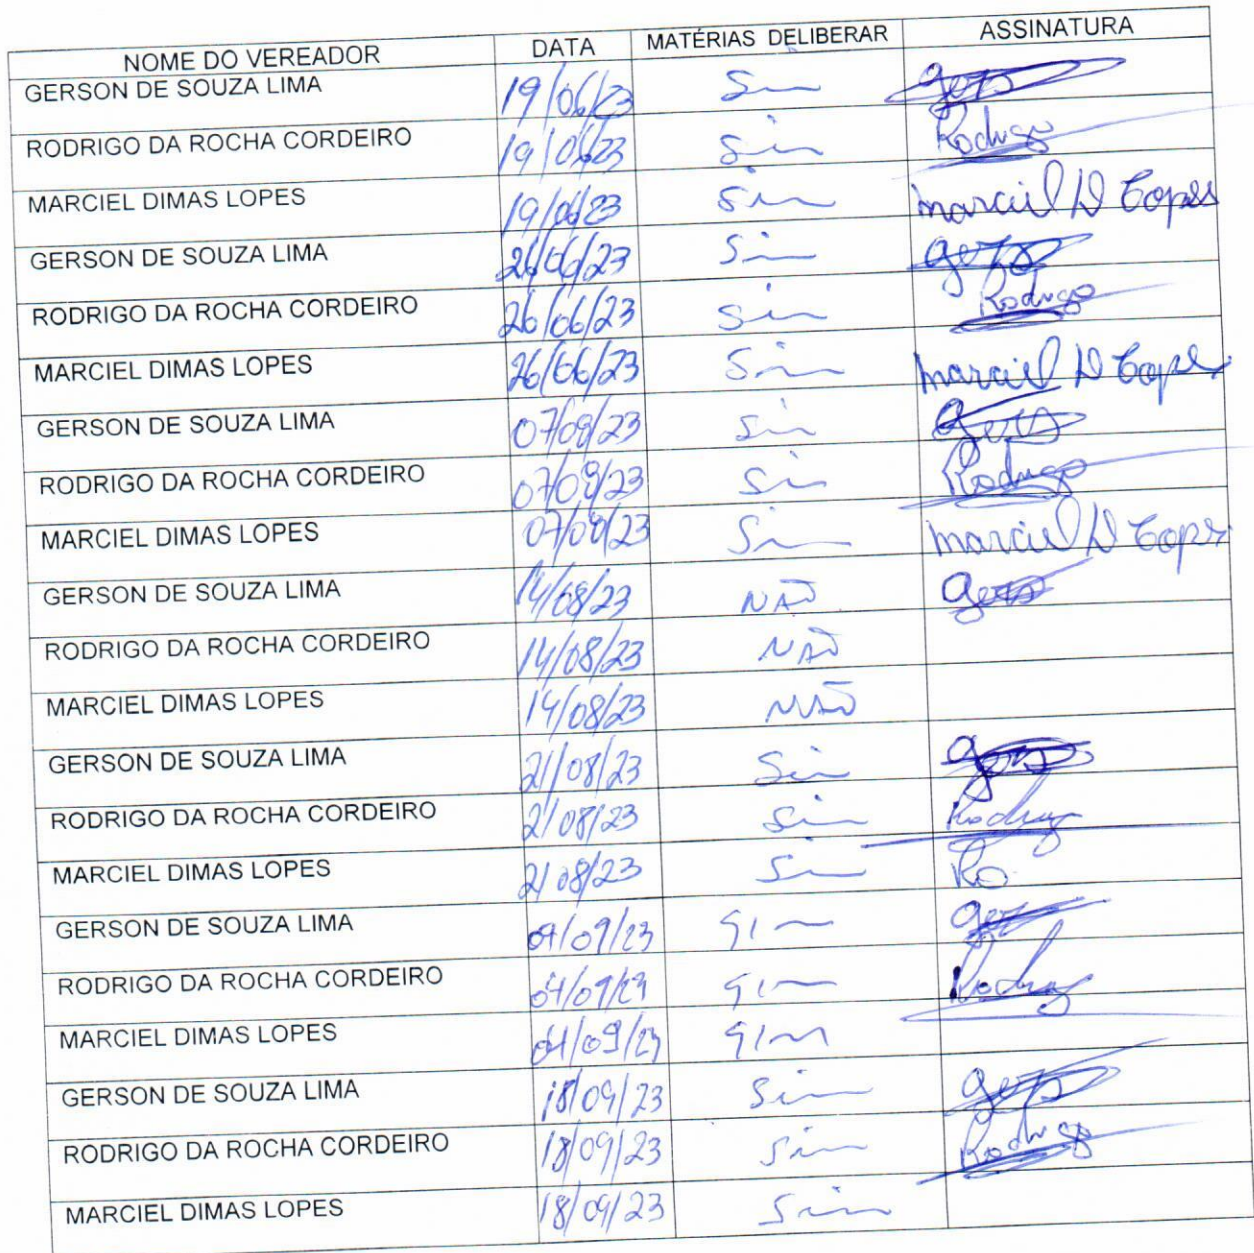 NOME DO VEREADOR DATA MATÉRIAS DELIBERAR ASSINATURA
GERSON DE SOUZA LIMA 19/06/23 Sim
RODRIGO DA ROCHA CORDEIRO 19/06/23 Sim Rodrigo
MARCIEL DIMAS LOPES 19/06/23 Sim marciel D Lopes
GERSON DE SOUZA LIMA 26/06/23 Sim
RODRIGO DA ROCHA CORDEIRO 26/06/23 Sim Rodrigo
MARCIEL DIMAS LOPES 26/06/23 Sim marciel D Lopes
GERSON DE SOUZA LIMA 07/08/23 Sim
RODRIGO DA ROCHA CORDEIRO 07/08/23 Sim Rodrigo
MARCIEL DIMAS LOPES 07/08/23 Sim marciel D Lopes
GERSON DE SOUZA LIMA 14/08/23 NÃO
RODRIGO DA ROCHA CORDEIRO 14/08/23 NÃO
MARCIEL DIMAS LOPES 14/08/23 NÃO
GERSON DE SOUZA LIMA 21/08/23 Sim
RODRIGO DA ROCHA CORDEIRO 21/08/23 Sim Rodrigo
MARCIEL DIMAS LOPES 21/08/23 Sim Ro
GERSON DE SOUZA LIMA 04/09/23 Sim
RODRIGO DA ROCHA CORDEIRO 04/09/23 Sim Rodrigo
MARCIEL DIMAS LOPES 04/09/23 Sim
GERSON DE SOUZA LIMA 18/09/23 Sim
RODRIGO DA ROCHA CORDEIRO 18/09/23 Sim Rodrigo
MARCIEL DIMAS LOPES 18/09/23 Sim